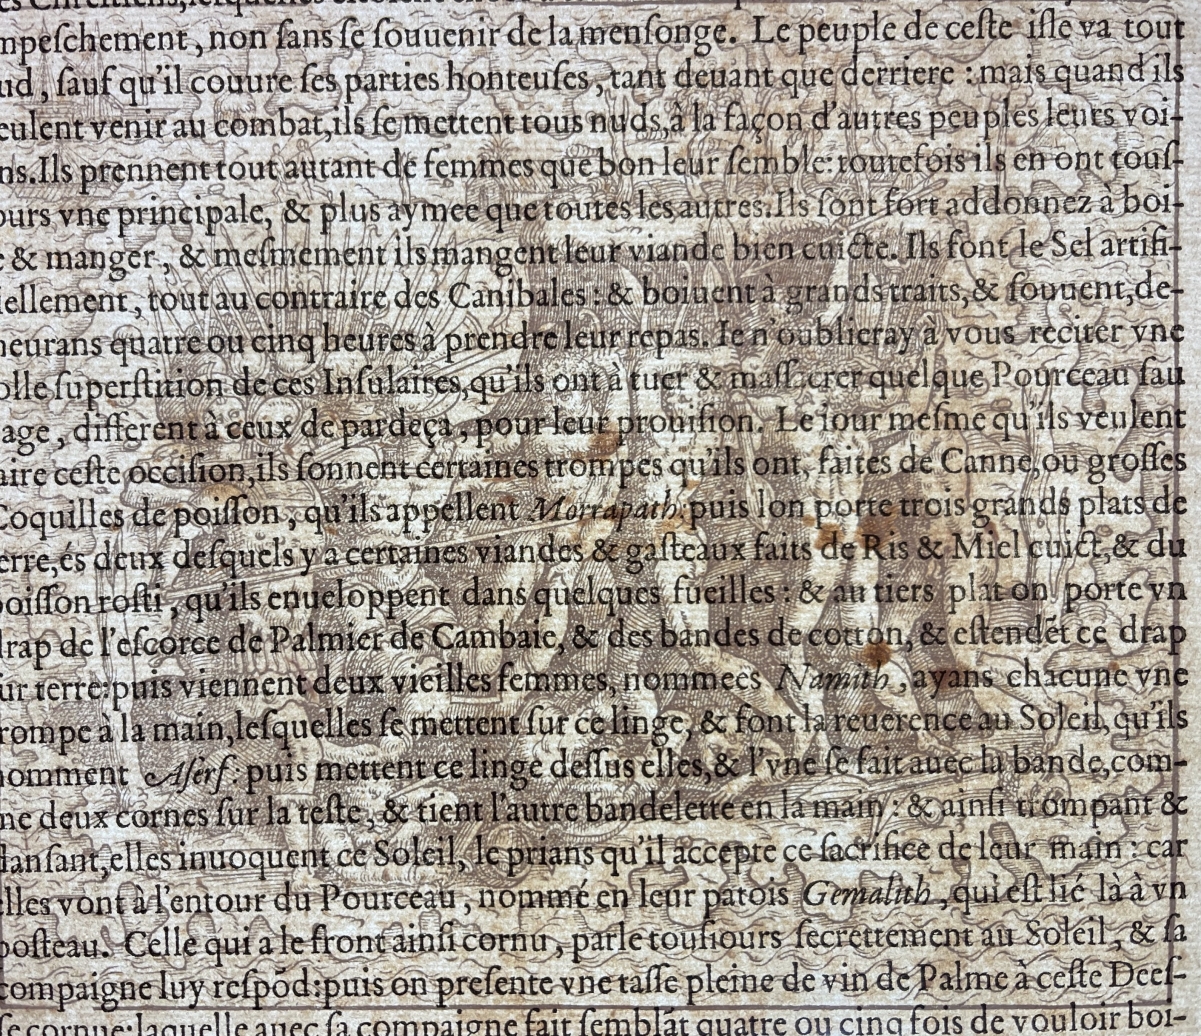 mpeſchement, non ſans ſe ſouuenir de la menſonge. Le peuple de ceſte iſle va tout
ud, ſauf qu'il couure ſes parties honteuſes, tant deuant que derriere : mais quand ils
eulent venir au combat, ils ſe mettent tous nuds, à la façon d'autres peuples leurs voi-
ns. Ils prennent tout autant de femmes que bon leur ſemble: toutefois ils en ont touſ-
ours vne principale, & plus aymee que toutes les autres. Ils ſont fort addonnez à boi-
& manger, & meſmement ils mangent leur viande bien cuicte. Ils font le Sel artifi-
iellement, tout au contraire des Canibales : & boiuent à grands traits, & ſouuent, de-
neurans quatre ou cinq heures à prendre leur repas. Ie n'oublieray à vous reciter vne
olle ſuperſtition de ces Inſulaires, qu'ils ont à tuer & maſſacrer quelque Pourceau ſau
age, different à ceux de pardeça, pour leur prouiſion. Le iour meſme qu'ils veulent
aire ceſte occiſion, ils ſonnent certaines trompes qu'ils ont, faites de Canne, ou groſſes
Coquilles de poiſſon, qu'ils appellent Morrapath: puis lon porte trois grands plats de
erre, és deux deſquels y a certaines viandes & gaſteaux faits de Ris & Miel cuict, & du
oiſſon roſti, qu'ils enueloppent dans quelques fueilles : & au tiers plat on porte vn
drap de l'eſcorce de Palmier de Cambaie, & des bandes de cotton, & eſtendẽt ce drap
ur terre: puis viennent deux vieilles femmes, nommees Namith, ayans chacune vne
rompe à la main, leſquelles ſe mettent ſur ce linge, & font la reuerence au Soleil, qu'ils
nomment Aſerf: puis mettent ce linge deſſus elles, & l'vne ſe fait auec la bande, com-
me deux cornes ſur la teſte, & tient l'autre bandelette en la main : & ainſi trompant &
danſant, elles inuoquent ce Soleil, le prians qu'il accepte ce ſacrifice de leur main : car
elles vont à l'entour du Pourceau, nommé en leur patois Gemalith, qui eſt lié là à vn
poſteau. Celle qui a le front ainſi cornu, parle touſiours ſecrettement au Soleil, & ſa
compaigne luy reſpõd: puis on preſente vne taſſe pleine de vin de Palme à ceſte Deeſ-
ſe cornue: laquelle auec ſa compaigne fait ſemblãt quatre ou cinq fois de vouloir boi-